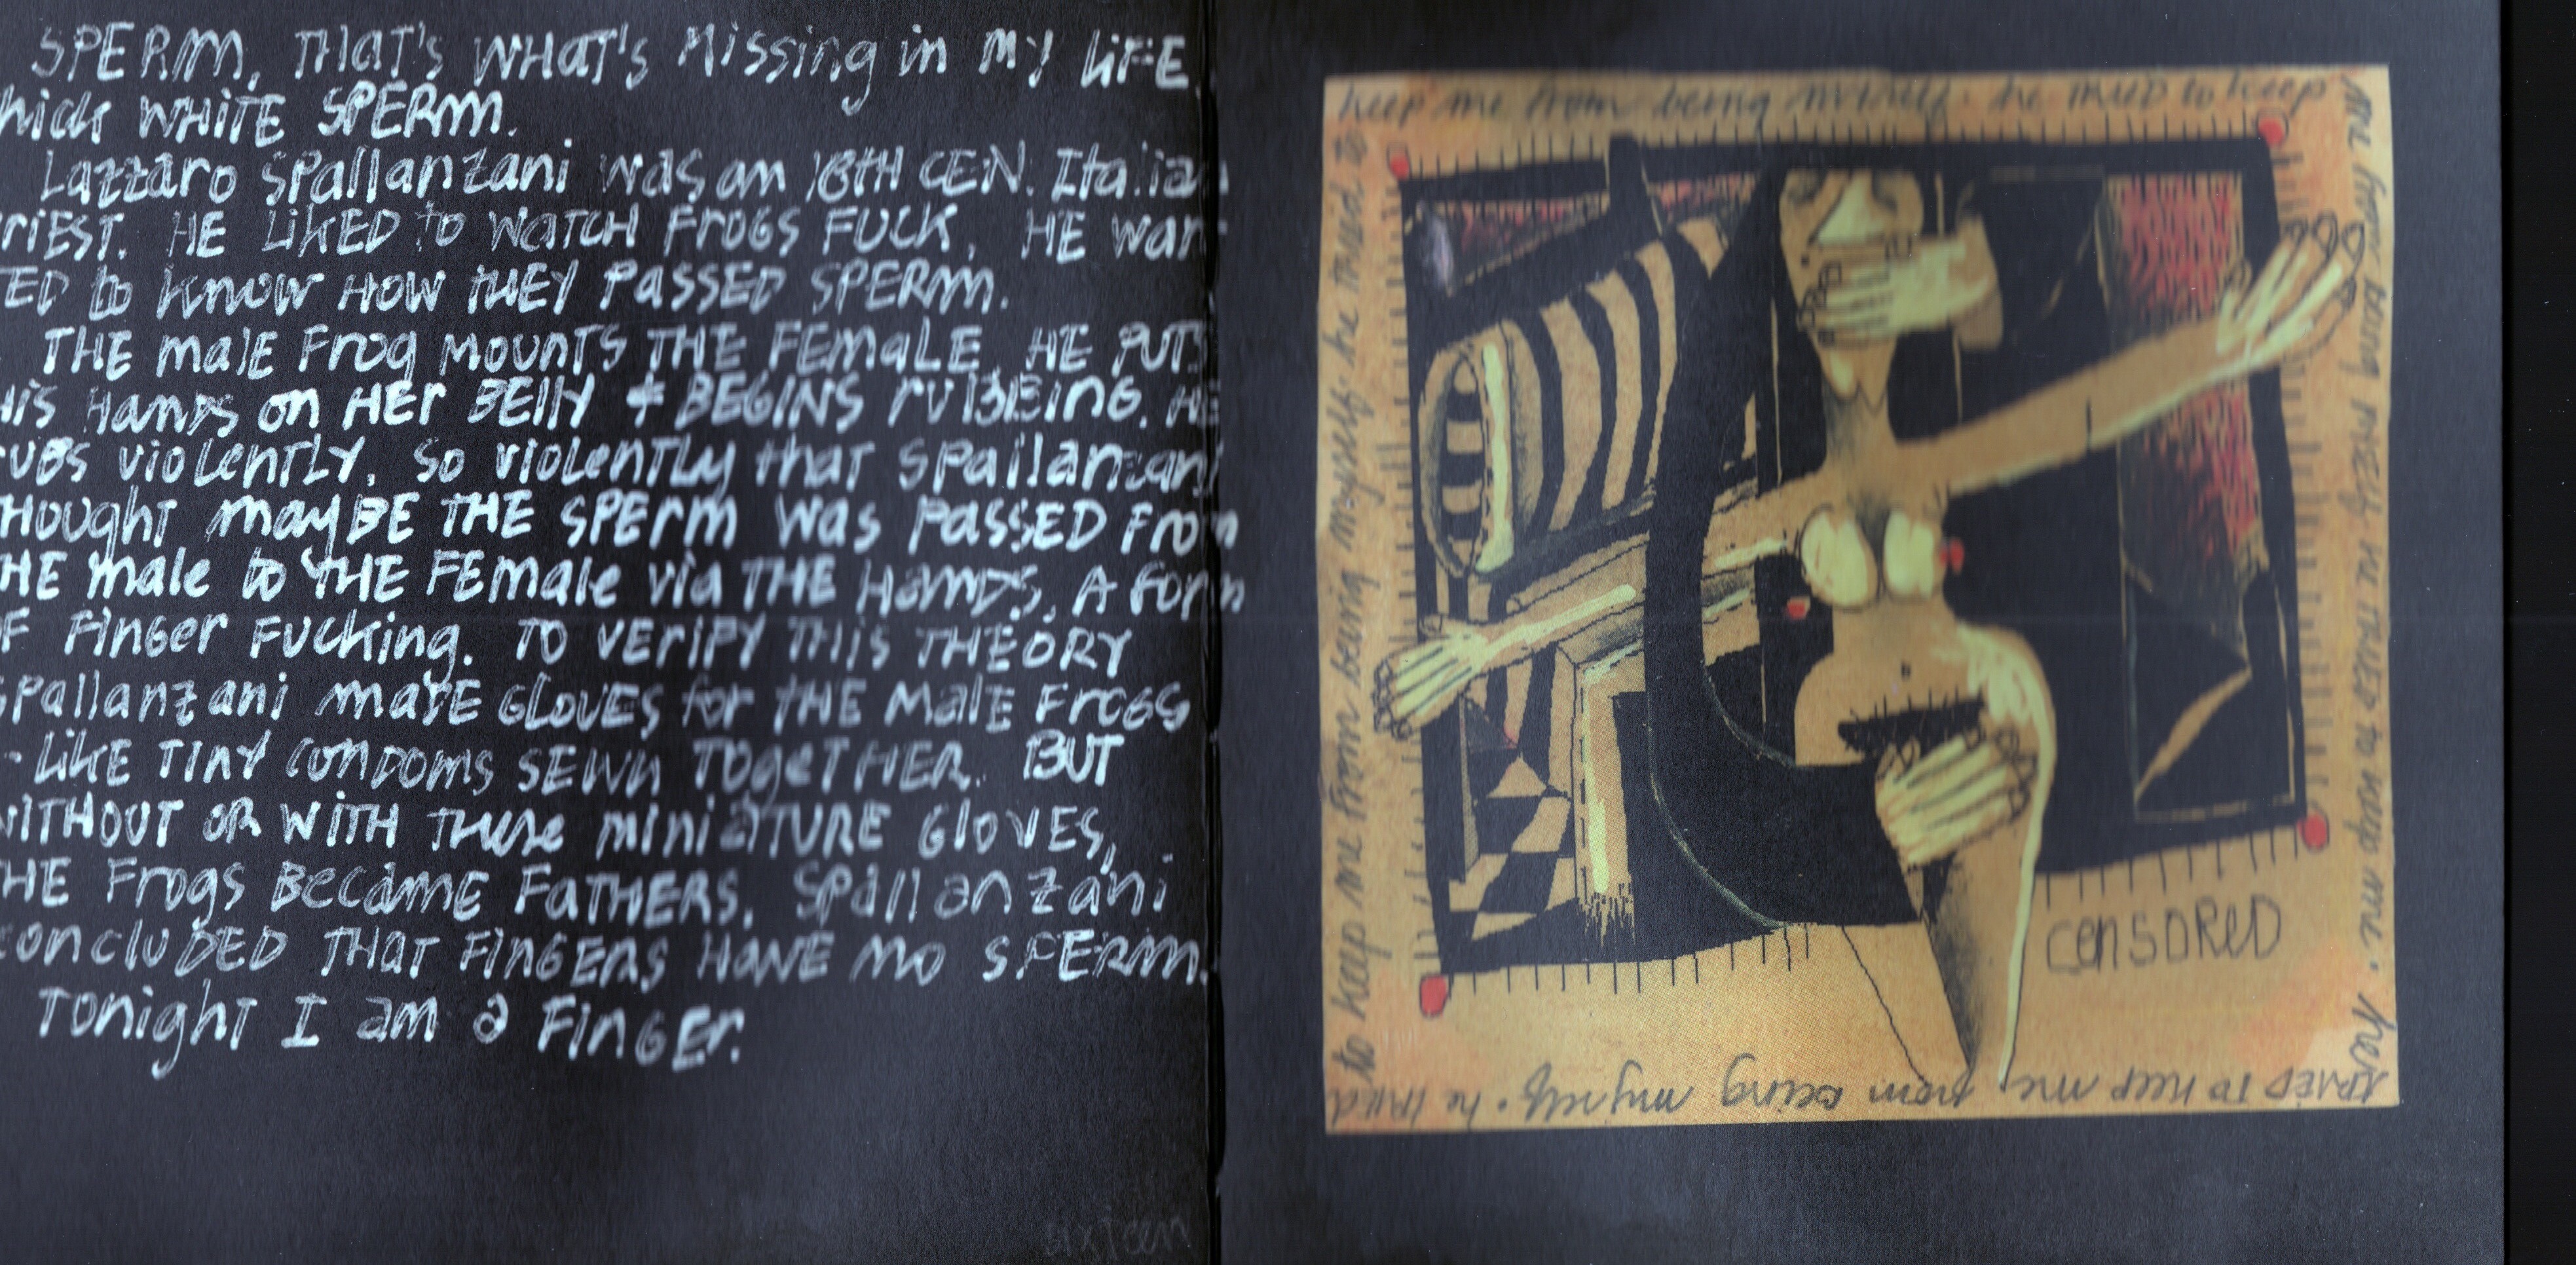 SPERM, THAT'S WHAT'S MISSING in MY LIFE
hick WHITE SPERM.
Lazzaro Spallanzani was an 18TH CEN. Italian
riEST. HE LIKED to WATCH FROGS FUCK. HE wan-
TED to KNOW HOW THEY PASSED SPERM.
THE malE Frog MOUNTS THE FEMALE. HE PUTS
His HANDS on HEr BEllY & BEGINS rUBBING. HE
rUBS VIOLENTLY. So VIOLENTLY that Spallanzani
HOUGHT mayBE THE SPErm was PASSED From
HE male to THE FEmale via THE HANDS. A Form
OF FinGer FUCKing. TO VERIFY THIS THEORY
Spallanzani maDE GLOVES for THE MalE FROGS
- LIKE TINY CONDOMS SEWN TOGETHER. BUT
WITHOUT OR WITH these MINIATURE GloVES,
HE Frogs BECAME FATHERS. Spallanzani
CONCLUDED THAT FINGERS HAVE NO SPERM.
Tonight I am a FinGEr.
sixteen
keep me from being myself. he tried to keep
me from being myself. he tried to keep me. he
tried to keep me from being myself. he tried
to keep me from being myself. he tried to
CENSORED